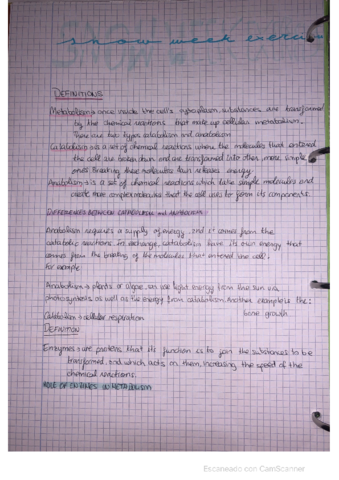 snow week exer
DEFINITIONS
Metabolism → once inside the cell's cytoplasm, substances are transformed
by the chemical reactions that make up cellular metabolism.
There are two types catabolism and anabolism
Catabolism → is a set of chemical reactions where the molecules that entered
the cell are broken down and are transformed into other, more, simple
ones. Breaking these molecules down releases energy.
Anabolism → is a set of chemical reactions which take simple molecules and
create more complex molecules that the cell uses to form its components.
DIFFERENCES BETWEEN CATABOLISM and ANABOLISM
Anabolism requires a supply of energy, and it comes from the
catabolic reactions. In exchange, catabolism have its own energy that
comes from the breaking of the molecules that entered the cell.
For example
Anabolism → plants or algae, can use light energy from the sun via
photosynthesis as well as the energy from catabolism. Another example is the:
bone growth
Catabolism → cellular respiration
DEFINITION
Enzymes → are proteins that its function is to join the substances to be
transformed, and which acts on them, increasing the speed of the
chemical reactions.
ROLE OF ENZYMES IN METABOLISM
Escaneado con CamScanner